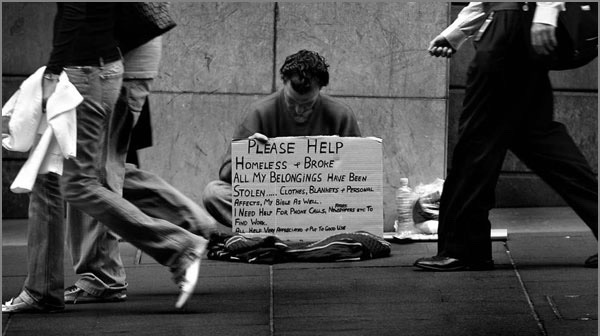 PLEASE HELP
HOMELESS + BROKE
ALL MY BELONGINGS HAVE BEEN
STOLEN..... CLOTHES, BLANKETS + PERSONAL
AFFECTS, MY BIBLE AS WELL..
I NEED HELP FOR PHONE CALLS, NEWSPAPERS ETC TO
FIND WORK.
ALL HELP VERY APPRECIATED + PUT TO GOOD USE